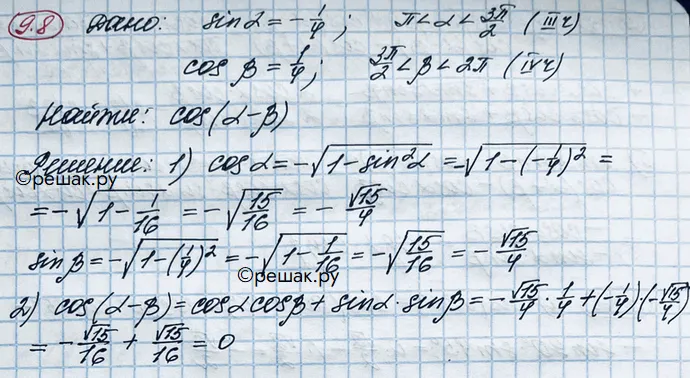 9.8 Дано: sin α = -1/4; π < α < 3π/2 (III ч)
cos β = 1/4; 3π/2 < β < 2π (IV ч)
Найти: cos(α-β)
Решение: 1) cos α = -√(1-sin²α) = -√(1-(-1/4)²) =
©решак.ру
= -√(1-1/16) = -√(15/16) = -√15/4
sin β = -√(1-(1/4)²) = -√(1-1/16) = -√(15/16) = -√15/4
©решак.ру
2) cos(α-β) = cosα cosβ + sinα · sinβ = -√15/4 · 1/4 + (-1/4)·(-√15/4)
= -√15/16 + √15/16 = 0